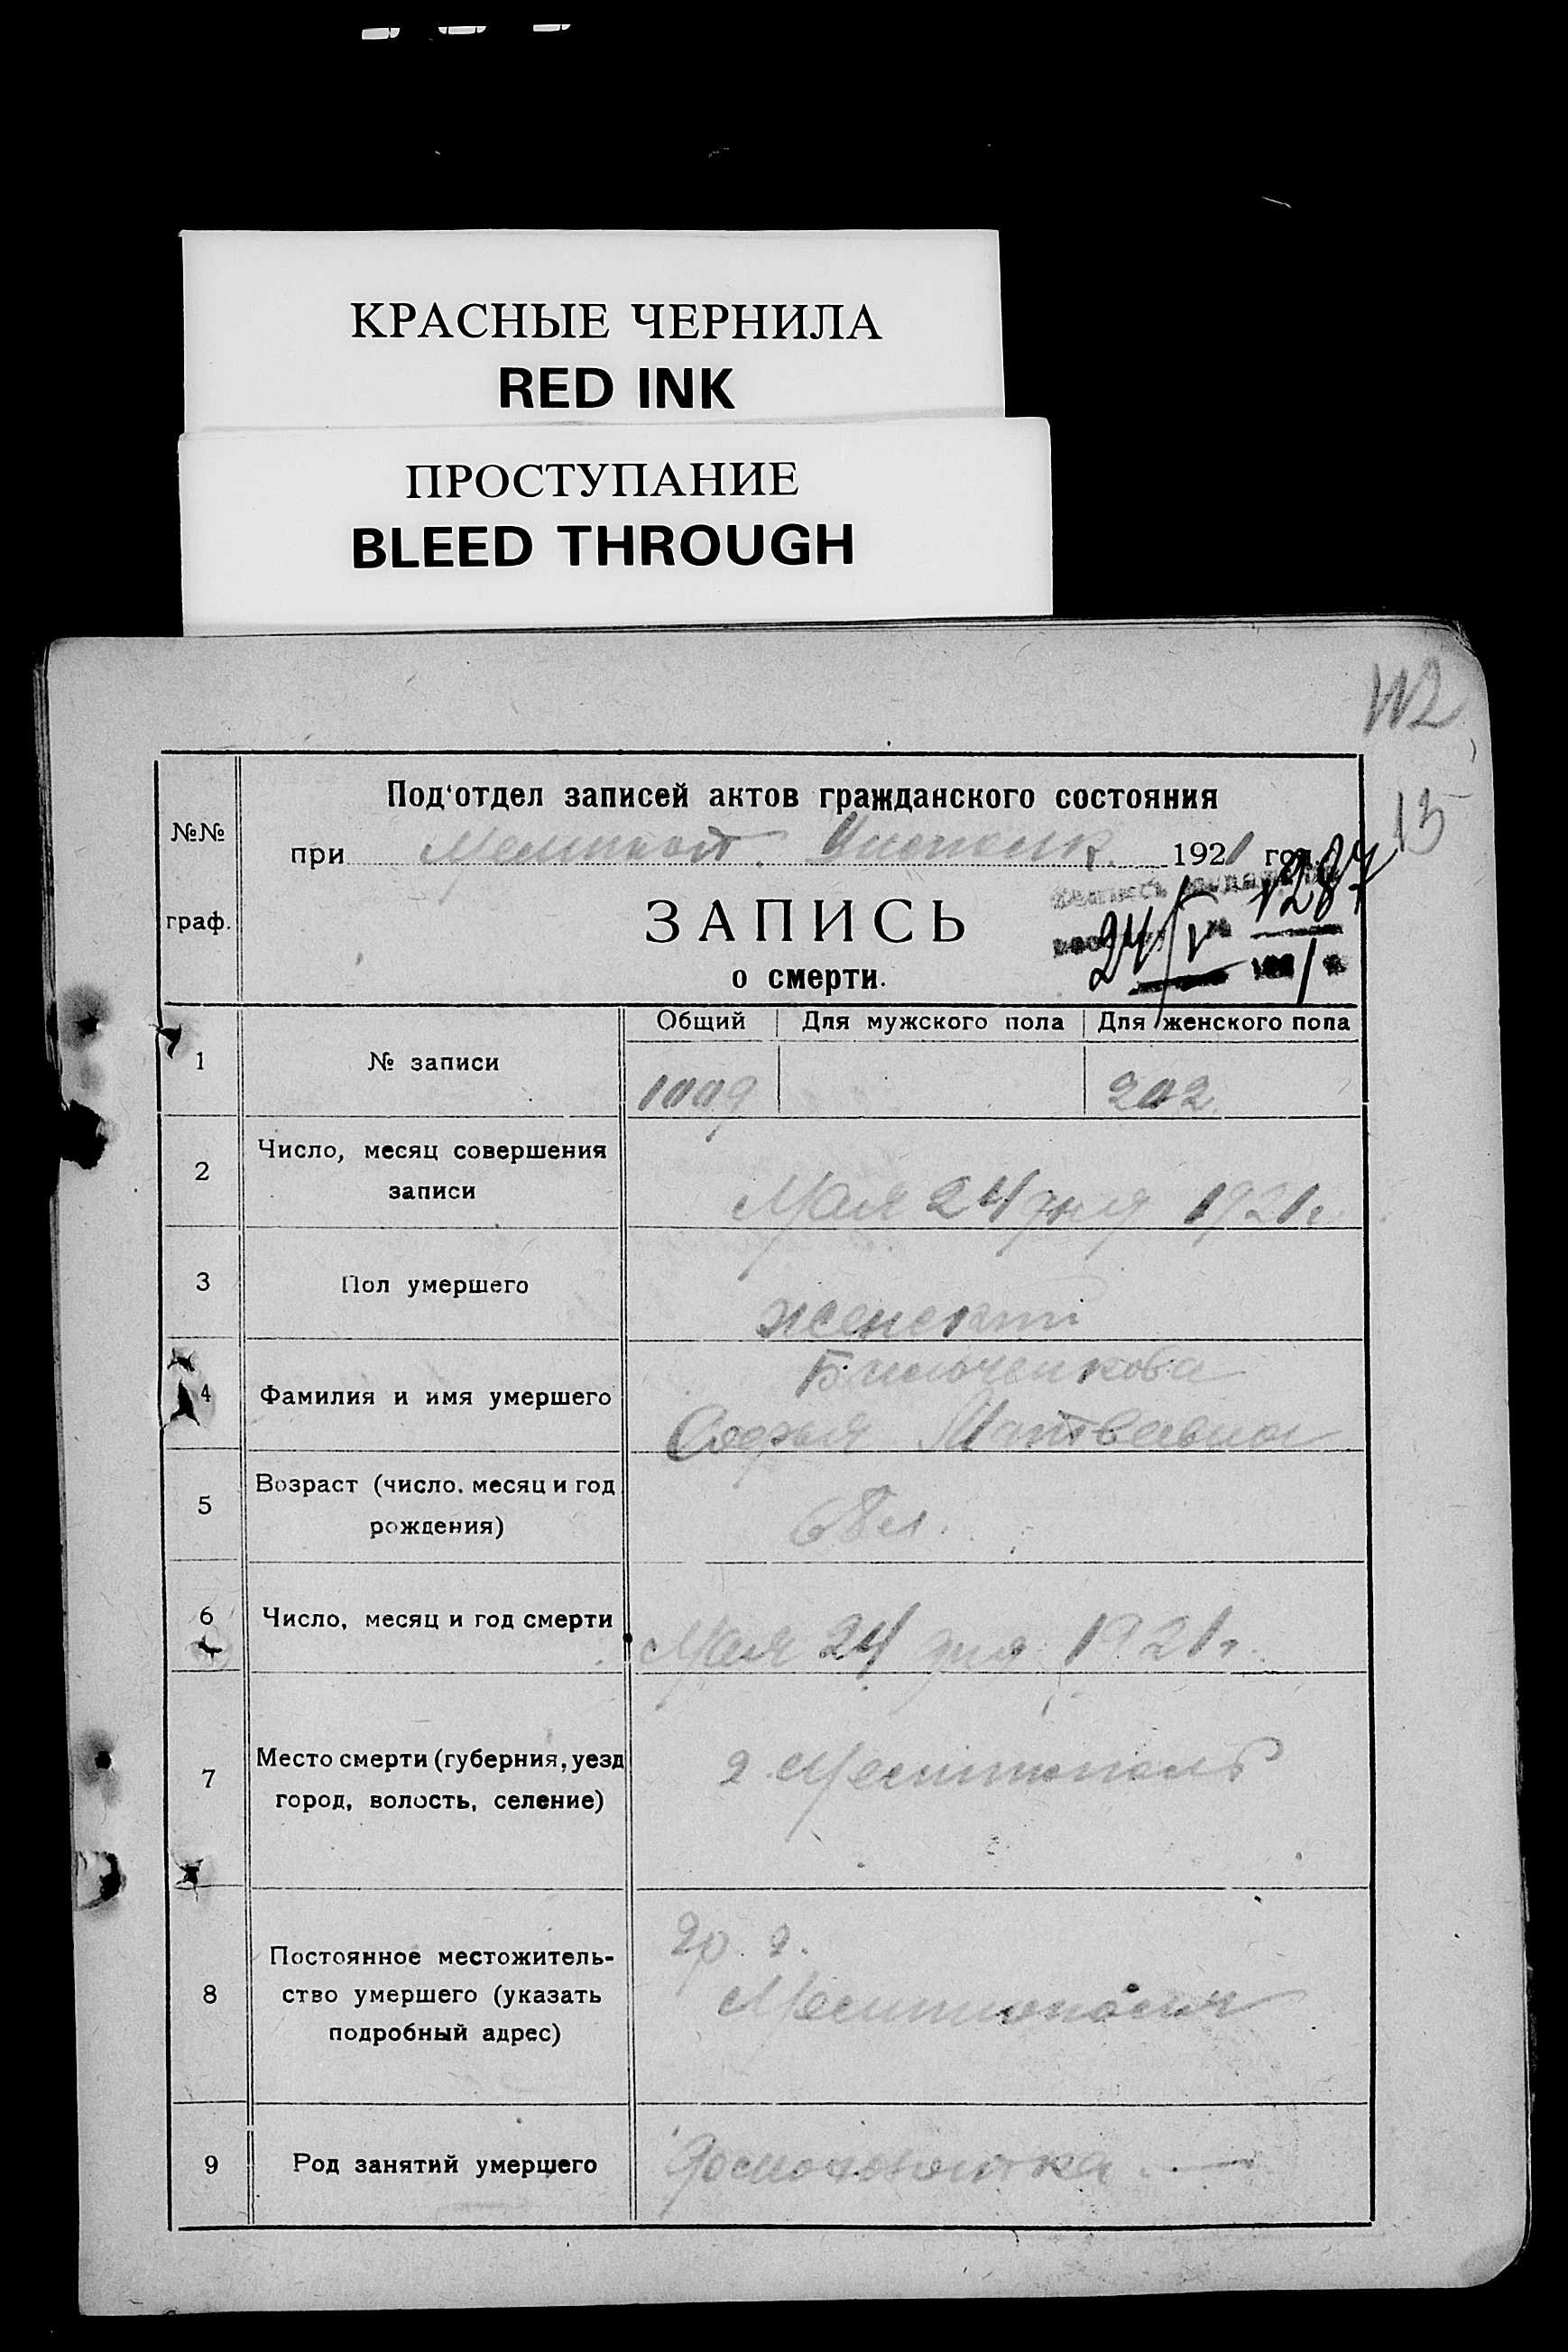 КРАСНЫЕ ЧЕРНИЛА
RED INK
ПРОСТУПАНИЕ
BLEED THROUGH
112
15
№№
граф.
Под‘отдел записей актов гражданского состояния
при Мелитоп. 1921 год.
1287
24/V 1921 г.
ЗАПИСЬ
о смерти.
Общий Для мужского пола Для женского пола
1 № записи 1009 202
2 Число, месяц совершения
записи
Мая 24 дня 1921 г.
3 Пол умершего женский
4 Фамилия и имя умершего
Софья Матвеевна
5 Возраст (число, месяц и год
рождения)
68 л.
6 Число, месяц и год смерти Мая 24 дня 1921 г.
7 Место смерти (губерния, уезд
город, волость, селение)
г. Мелитополь
8 Постоянное местожитель-
ство умершего (указать
подробный адрес)
гр. г.
Мелитополя
9 Род занятий умершего